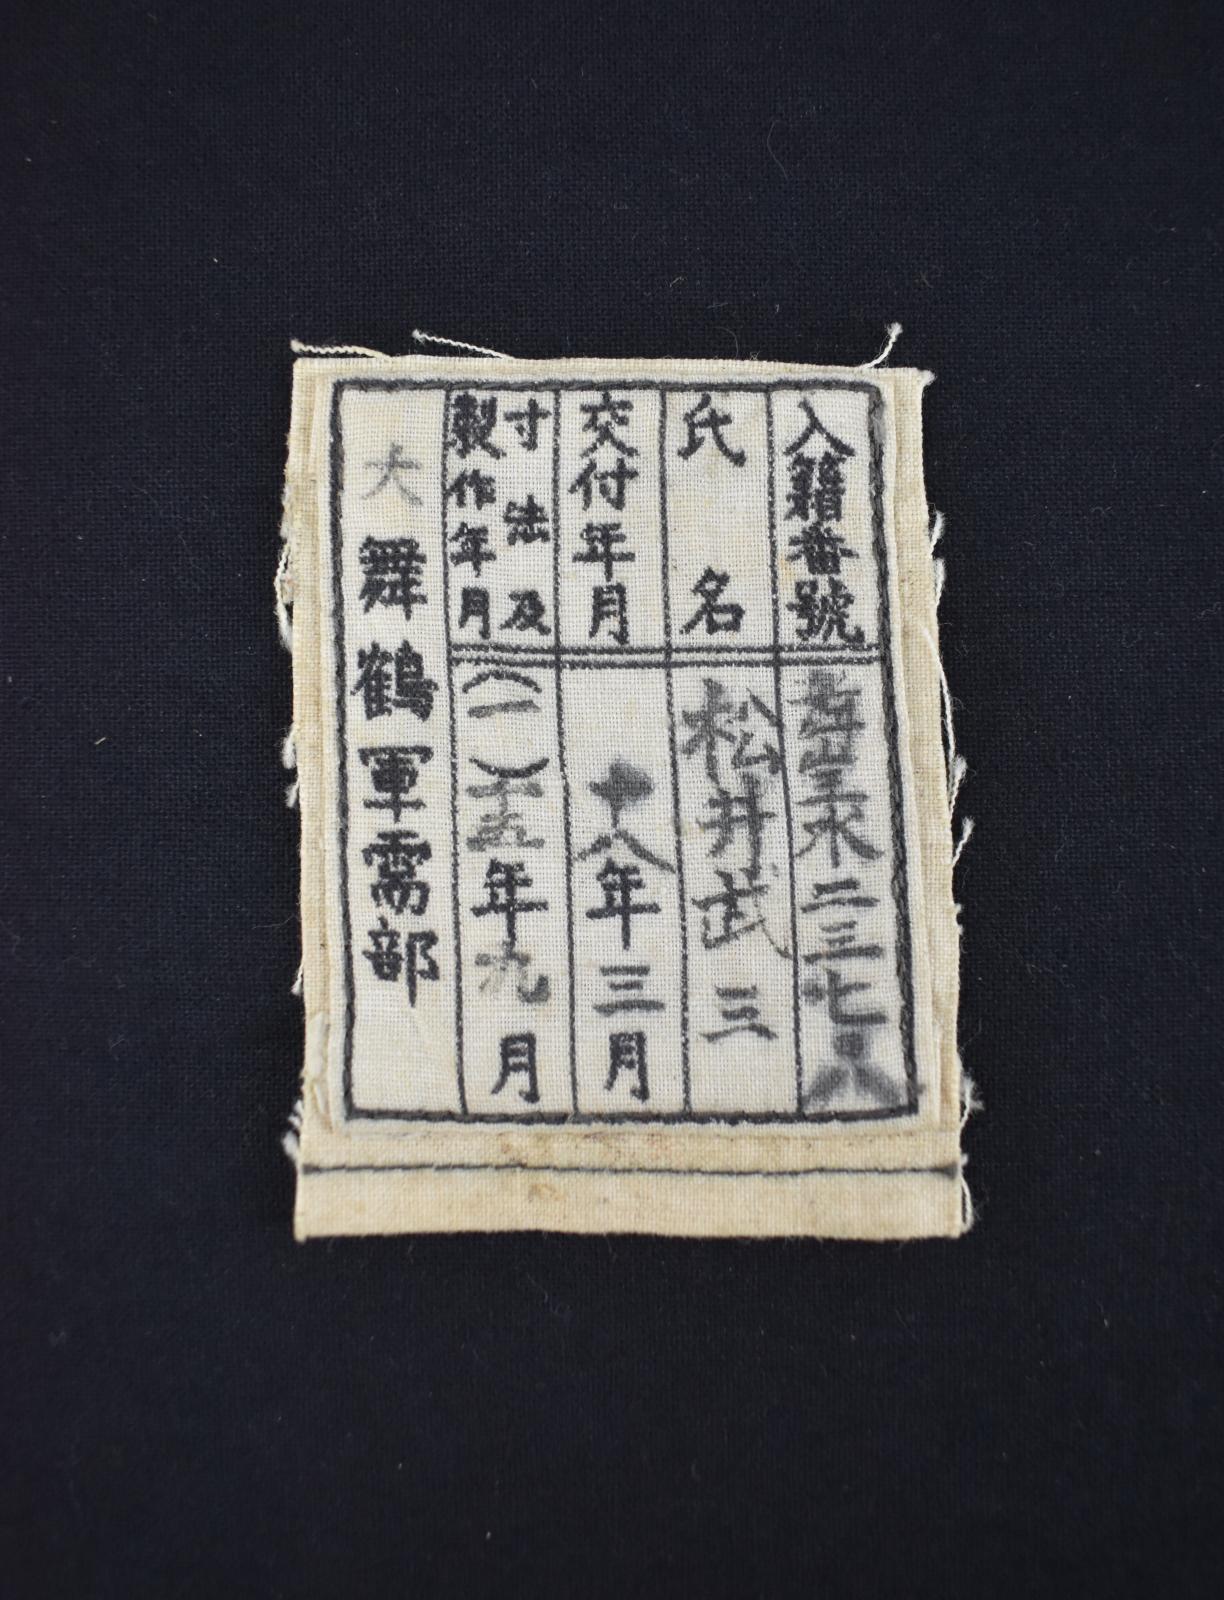 入籍番號 水二三七六
氏名 松井武三
交付年月 十八年三月
寸法及
製作年月 (一) 十五年九月
大 舞鶴軍需部